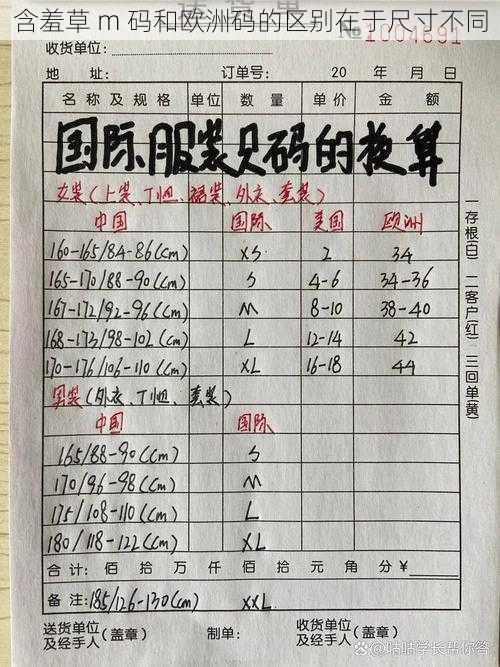 含羞草 m 码和欧洲码的区别在于尺寸不同
送 货 单
收货单位: №1004691
地址: 订单号: 20 年 月 日
名称及规格 单位 数量 单价 金额
国际服装尺码的换算
女装(上装、T恤、裙装、外衣、套装)
中国 国际 美国 欧洲
160-165/84-86(cm) XS 2 34
165-170/88-90(cm) S 4-6 34-36
167-172/92-96(cm) M 8-10 38-40
168-173/98-102(cm) L 12-14 42
170-176/106-110(cm) XL 16-18 44
男装(外衣、T恤、套装)
中国 国际
165/88-90(cm) S
170/96-98(cm) M
175/108-110(cm) L
180/118-122(cm) XL
合计: 佰 拾 万 仟 佰 拾 元 角 分 ¥
备注: 185/126-130(cm) XXL
送货单位及经手人(盖章) 制单: 收货单位及经手人(盖章)
一存根(白) 二客户(红) 三回单(黄)
@咕咕学长帮你答